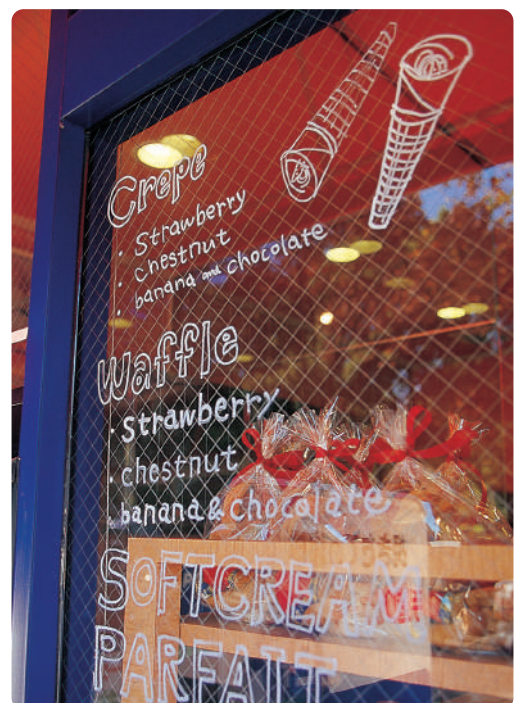 Crepe
· Strawberry
· chestnut
· banana and chocolate
Waffle
· Strawberry
· chestnut
· banana & chocolate
SOFTCREAM
PARFAIT